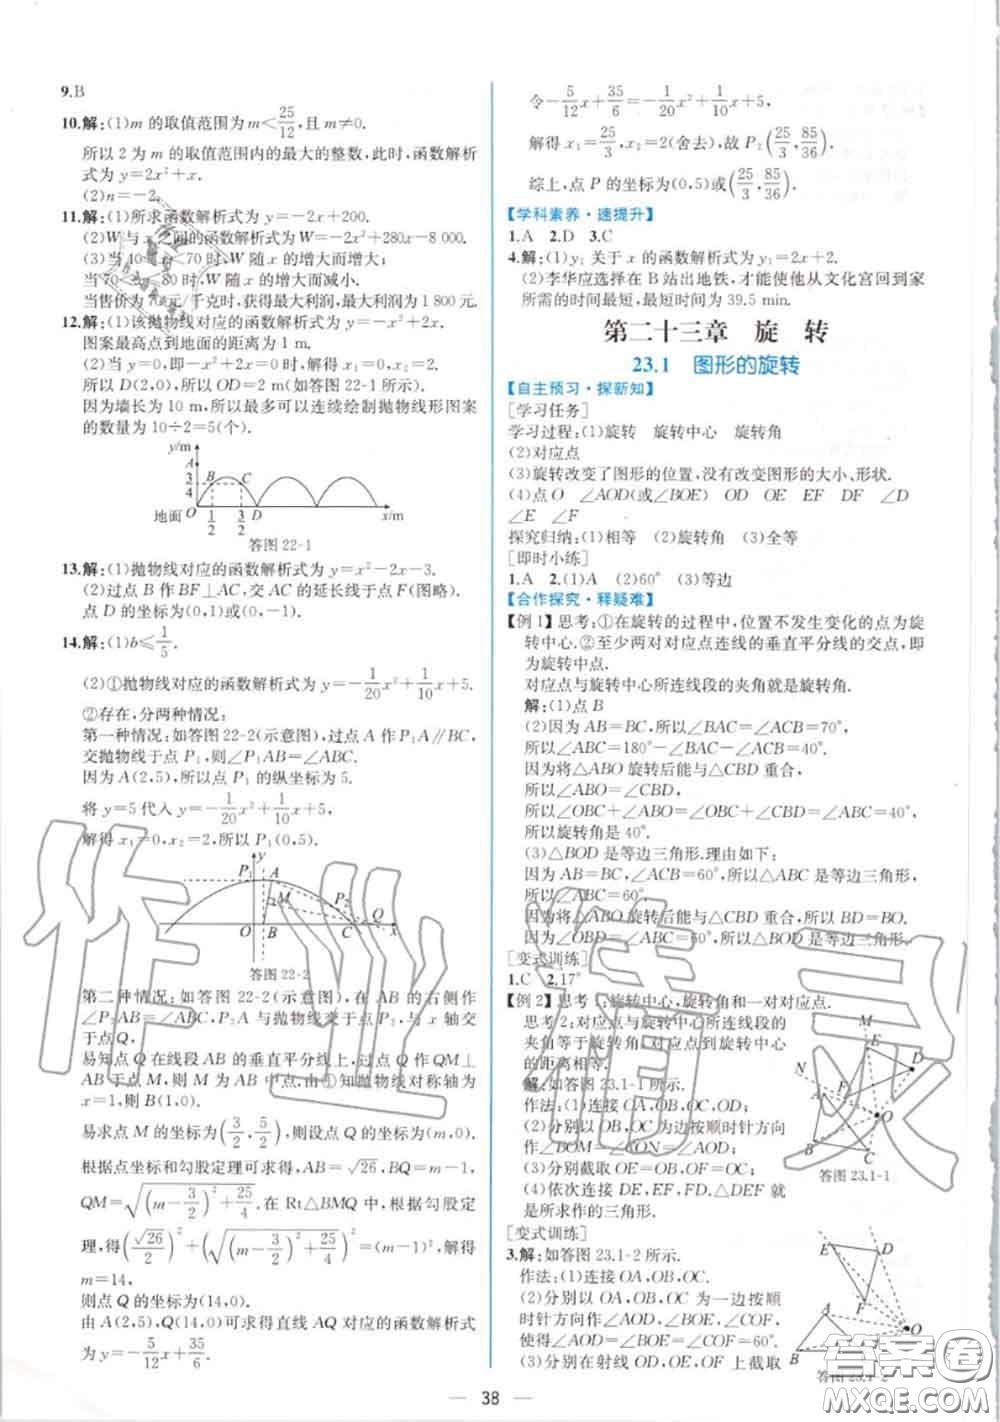 9.B
10.解:(1)m 的取值范围为 m<25/12,且 m≠0.
所以 2 为 m 的取值范围内的最大的整数,此时,函数解析
式为 y=2x²+x.
(2)n=-2.
11.解:(1)所求函数解析式为 y=-2x+200.
(2)W 与 x 之间的函数解析式为 W=-2x²+280x-8 000.
(3)当 40≤x<70 时,W 随 x 的增大而增大;
当 70<x≤80 时,W 随 x 的增大而减小.
当售价为 70 元/千克时,获得最大利润,最大利润为 1 800 元.
12.解:(1)该抛物线对应的函数解析式为 y=-x²+2x.
图案最高点到地面的距离为 1 m.
(2)当 y=0 时,即-x²+2x=0,解得 x₁=0,x₂=2.
所以 D(2,0),所以 OD=2 m(如答图 22-1 所示).
因为墙长为 10 m,所以最多可以连续绘制抛物线形图案
的数量为 10÷2=5(个).
y/m
A
3/4 B C
地面 O 1/2 3/2 D x/m
答图 22-1
13.解:(1)抛物线对应的函数解析式为 y=x²-2x-3.
(2)过点 B 作 BF⊥AC,交 AC 的延长线于点 F(图略).
点 D 的坐标为(0,1)或(0,-1).
14.解:(1)b≤1/5.
(2)①抛物线对应的函数解析式为 y=-1/20x²+1/10x+5.
②存在,分两种情况:
第一种情况:如答图 22-2(示意图),过点 A 作 P₁A∥BC,
交抛物线于点 P₁,则∠P₁AB=∠ABC.
因为 A(2,5),所以点 P₁ 的纵坐标为 5.
将 y=5 代入 y=-1/20x²+1/10x+5,
解得 x₁=0,x₂=2,所以 P₁(0,5).
y
P₁ A
M P₂
O B C Q x
答图 22-2
第二种情况:如答图 22-2(示意图),在 AB 的右侧作
∠P₂AB=∠ABC,P₂A 与抛物线交于点 P₂,与 x 轴交
于点 Q,
易知点 Q 在线段 AB 的垂直平分线上,过点 Q 作 QM⊥
AB 于点 M,则 M 为 AB 中点.由①知抛物线对称轴为
x=1,则 B(1,0).
易求点 M 的坐标为(3/2,5/2),则设点 Q 的坐标为(m,0).
根据点坐标和勾股定理可求得,AB=√26,BQ=m-1.
QM=√((m-3/2)²+25/4).在 Rt△BMQ 中,根据勾股定
理,得(√26/2)²+(√((m-3/2)²+25/4))²=(m-1)²,解得
m=14,
则点 Q 的坐标为(14,0).
由 A(2,5),Q(14,0)可求得直线 AQ 对应的函数解析式
为 y=-5/12x+35/6.
令-5/12x+35/6=-1/20x²+1/10x+5,
解得 x₁=25/3,x₂=2(舍去),故 P₂(25/3,85/36).
综上,点 P 的坐标为(0,5)或(25/3,85/36).
【学科素养·速提升】
1.A 2.D 3.C
4.解:(1)y₁ 关于 x 的函数解析式为 y₁=2x+2.
(2)李华应选择在 B 站出地铁,才能使他从文化宫回到家
所需的时间最短,最短时间为 39.5 min.
第二十三章 旋 转
23.1 图形的旋转
【自主预习·探新知】
[学习任务]
学习过程:(1)旋转 旋转中心 旋转角
(2)对应点
(3)旋转改变了图形的位置,没有改变图形的大小、形状.
(4)点 O ∠AOD(或∠BOE) OD OE EF DF ∠D
∠E ∠F
探究归纳:(1)相等 (2)旋转角 (3)全等
[即时小练]
1.A 2.(1)A (2)60° (3)等边
【合作探究·释疑难】
【例 1】思考:①在旋转的过程中,位置不发生变化的点为旋
转中心.②至少两对对应点连线的垂直平分线的交点,即
为旋转中点.
对应点与旋转中心所连线段的夹角就是旋转角.
解:(1)点 B
(2)因为 AB=BC,所以∠BAC=∠ACB=70°,
所以∠ABC=180°-∠BAC-∠ACB=40°.
因为将△ABO 旋转后能与△CBD 重合,
所以∠ABO=∠CBD,
所以∠OBC+∠ABO=∠OBC+∠CBD=∠ABC=40°,
所以旋转角是 40°.
(3)△BOD 是等边三角形.理由如下:
因为 AB=BC,∠ACB=60°,所以△ABC 是等边三角形,
所以∠ABC=60°.
因为将△ABO 旋转后能与△CBD 重合,所以 BD=BO.
因为∠OBD=∠ABC=60°,所以△BOD 是等边三角形.
[变式训练]
1.C 2.17°
【例 2】思考 1:旋转中心,旋转角和一对对应点.
思考 2:对应点与旋转中心所连线段的
夹角等于旋转角,对应点到旋转中心
的距离相等.
解:如答图 23.1-1 所示.
作法:(1)连接 OA,OB,OC,OD.
(2)分别以 OB,OC 为边按顺时针方向
作∠BOM=∠CON=∠AOD.
(3)分别截取 OE=OB,OF=OC.
(4)依次连接 DE,EF,FD,△DEF 就
是所求作的三角形.
M
E D
N F
A
O
B C
答图 23.1-1
[变式训练]
3.解:如答图 23.1-2 所示.
作法:(1)连接 OA,OB,OC.
(2)分别以 OA,OB,OC 为一边按顺
时针方向作∠AOD,∠BOE,∠COF,
使得∠AOD=∠BOE=∠COF=60°.
(3)分别在射线 OD,OE,OF 上截取
E D
F
A O
B C
答图 23.1-2
38
作业精灵
答案圈
MXQE.COM